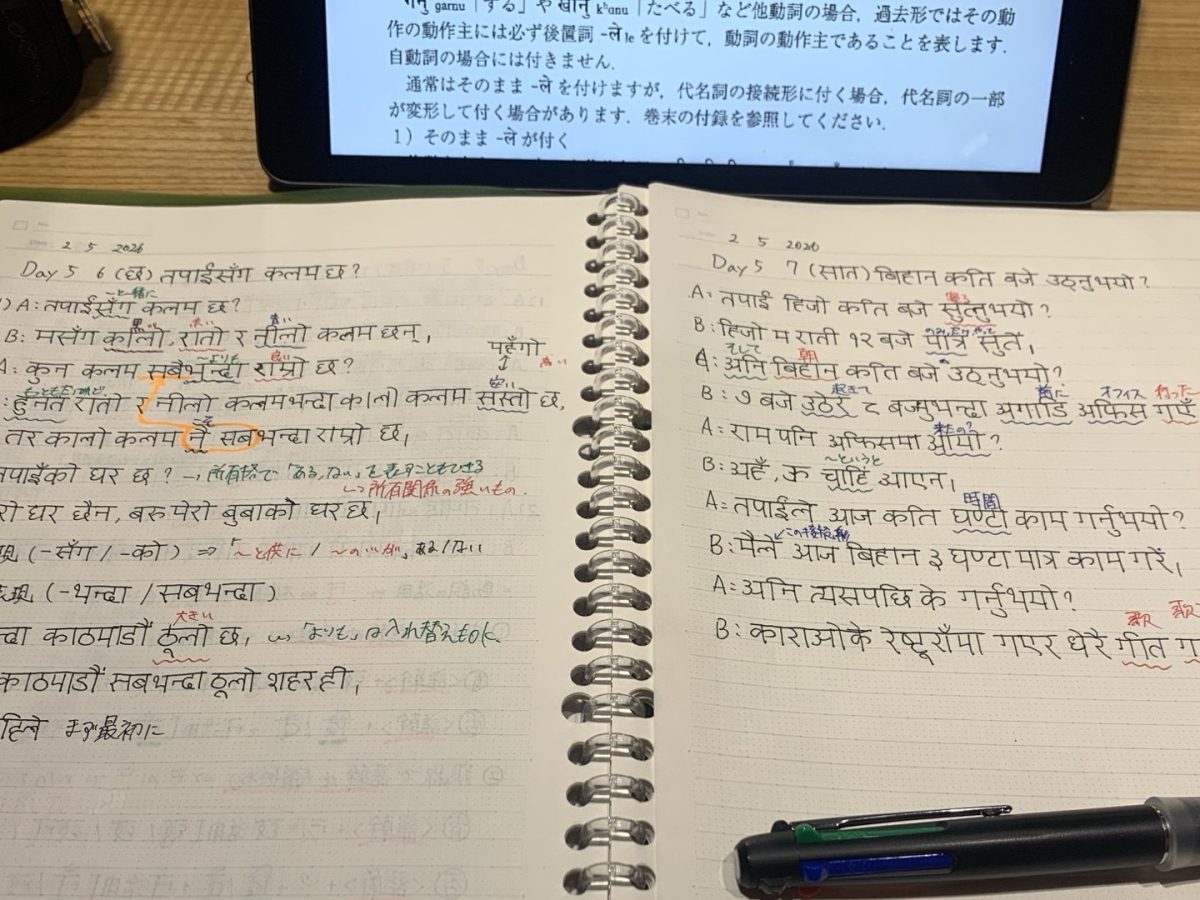 गर्नु garnu「する」や खानु kʰanu「たべる」など他動詞の場合，過去形ではその動
作の動作主には必ず後置詞 -ले le を付けて，動詞の動作主であることを表します．
自動詞の場合には付きません．
通常はそのまま -ले を付けますが，代名詞の接続形に付く場合，代名詞の一部
が変形して付く場合があります．巻末の付録を参照してください．
1）そのまま -ले が付く
2 5 2026
Day 5 6 (छ) तपाईसँग कलम छ?
A: तपाईसँग कलम छ?
〜と一緒に
B: मसँग कालो, रातो र नीलो कलम छन्,
黒い 赤い 青い
महँगो
高い
A: कुन कलम सबैभन्दा राम्रो छ?
〜よりも 良い
: हुनत रातो र नीलो कलमभन्दा कालो कलम सस्तो छ,
安い
तर कालो कलम नै सबभन्दा राम्रो छ,
तपाइँको घर छ? → 所有格で「ある,ない」を表すこともできる
↳所有関係の強いもの.
रो घर छैन, बरु मेरो बुबाको घर छ,
(-सँग / -को) ⇒「〜と共に / 〜の」がある/ない
(-भन्दा / सबभन्दा)
大きい
न्दा काठमाडौं ठूलो छ, 「よりも」は入れ替えもOK
काठमाडौं सबभन्दा ठूलो शहर हो,
हिले まず最初に
2 5 2026
Day 5 7 (सात) बिहान कति बजे उठ्नुभयो?
A: तपाई हिजो कति बजे सुत्नुभयो?
寝る
B: हिजो म राती १२ बजे मात्र सुतें,
そして 朝
A: अनि बिहान कति बजे उठ्नुभयो?
起きて 前に オフィス 行った
B: ७ बजे उठेर ८ बजेभन्दा अगाडि अफिस गएँ
A: राम पनि अफिसमा आयो?
来たの?
〜というと
B: अहँ, ऊ चाहिं आएन,
時間
A: तपाईले आज कति घण्टा काम गर्नुभयो?
B: मैले आज बिहान ३ घण्टा मात्र काम गरें,
A: अनि त्यसपछि के गर्नुभयो?
歌 歌
B: काराओके रेष्टूराँमा गएर धेरै गीत ग